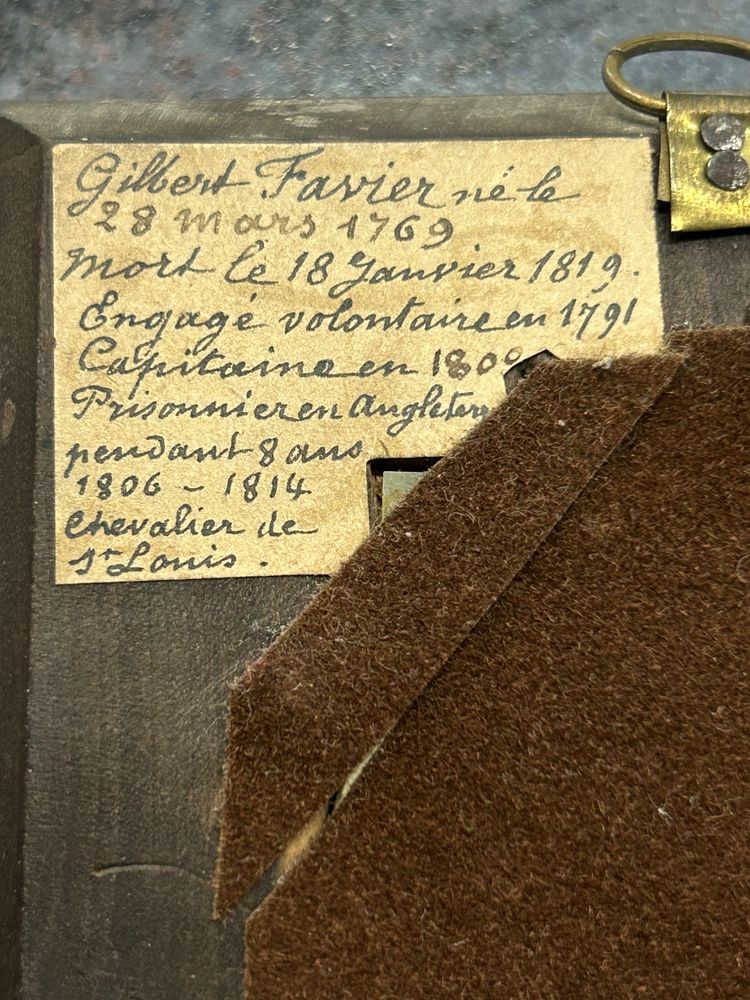 Gilbert Favier né le
28 mars 1769
Mort le 18 Janvier 1819.
Engagé volontaire en 1791
Capitaine en
Prisonnier en Angleterre
pendant 8 ans
1806 - 1814
Chevalier de
St Louis.